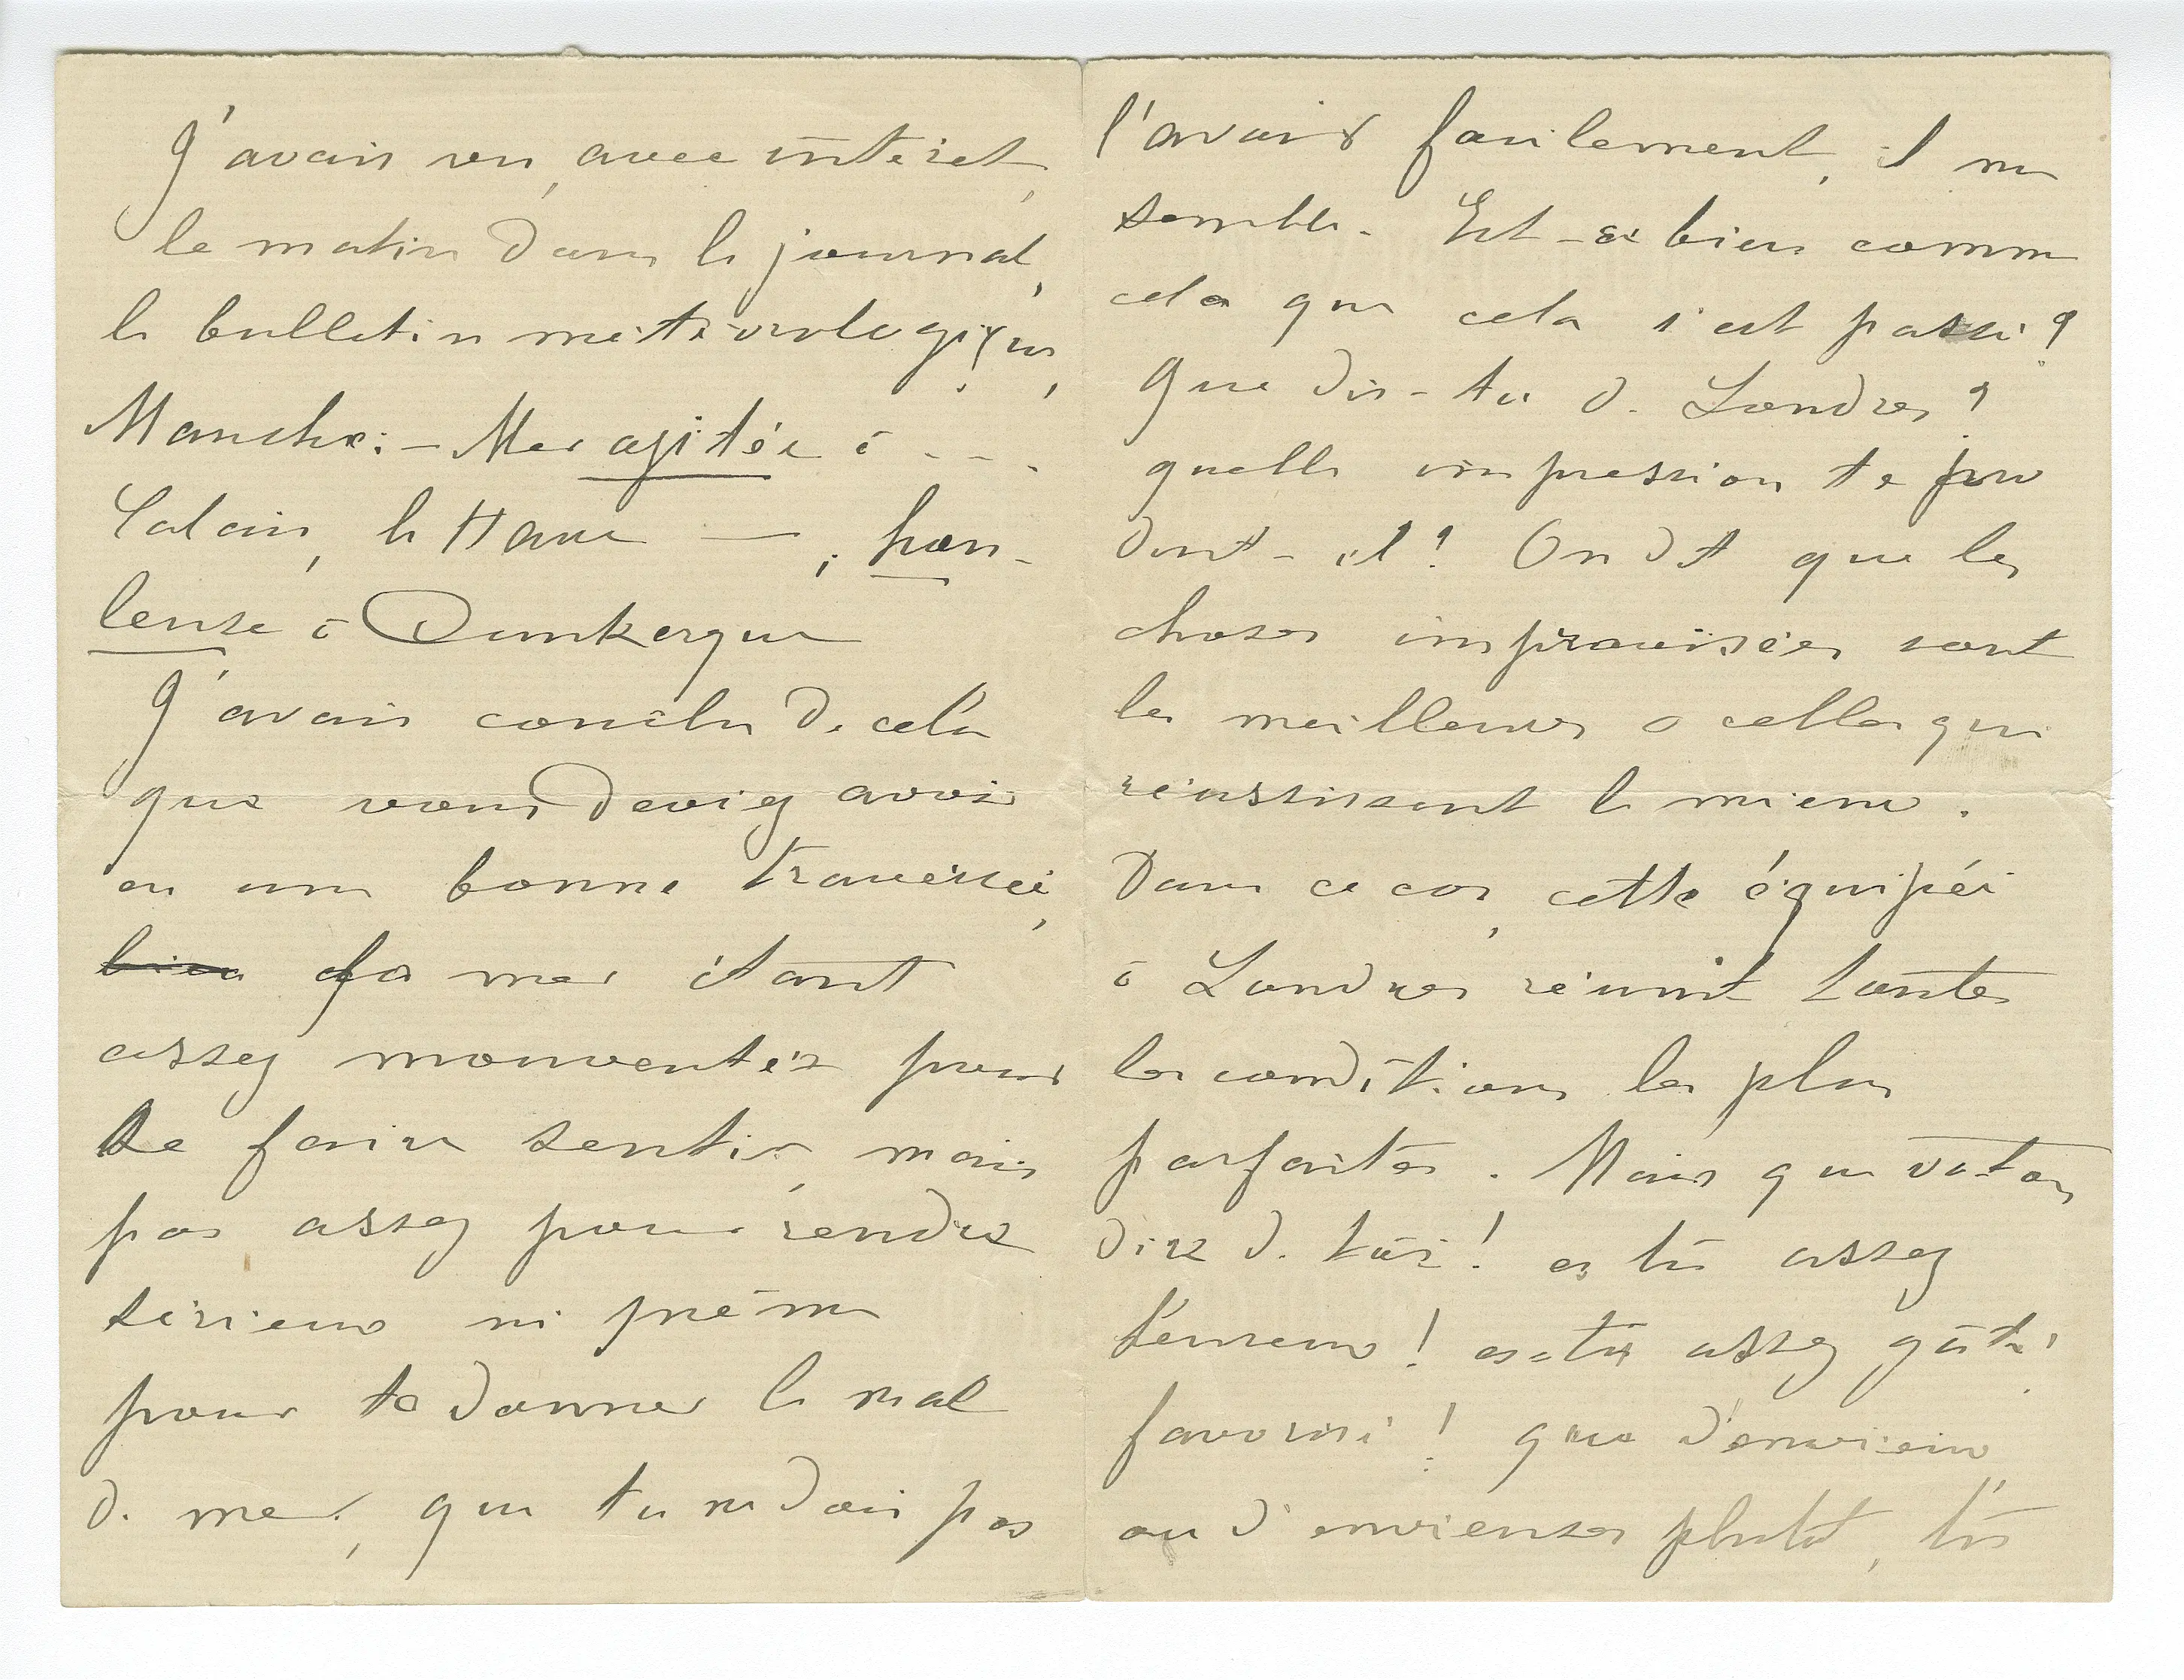 J'avais vu, avec intérêt,
le matin dans le journal,
le bulletin météorologique,
Manche: - Mer agitée à - - -
Calais, le Havre — ; hou-
leuse à Dunkerque
J'avais conclu de cela
que vous deviez avoir
eu une bonne traversée,
bien la mer étant
assez mouventée pour
se faire sentir, mais
pas assez pour rendre
sérieux ni même
pour te donner le mal
de mer, que tu ne dois pas
l'avoir facilement, il me
semble. Est-ce bien comme
cela que cela s'est passé?
Que dis-tu de Londres?
quelle impression te pro
duit-il? On dit que les
choses improvisées sont
les meilleures o celles qui
réussissent le mieux.
Dans ce cas, cette équipée
à Londres réunit toutes
les conditions les plus
parfaites. Mais que va-t-on
dire de toi! es tu assez
heureux! es-tu assez gâté
favorisé! que d'envieux,
ou d'envieuses plutôt, tu